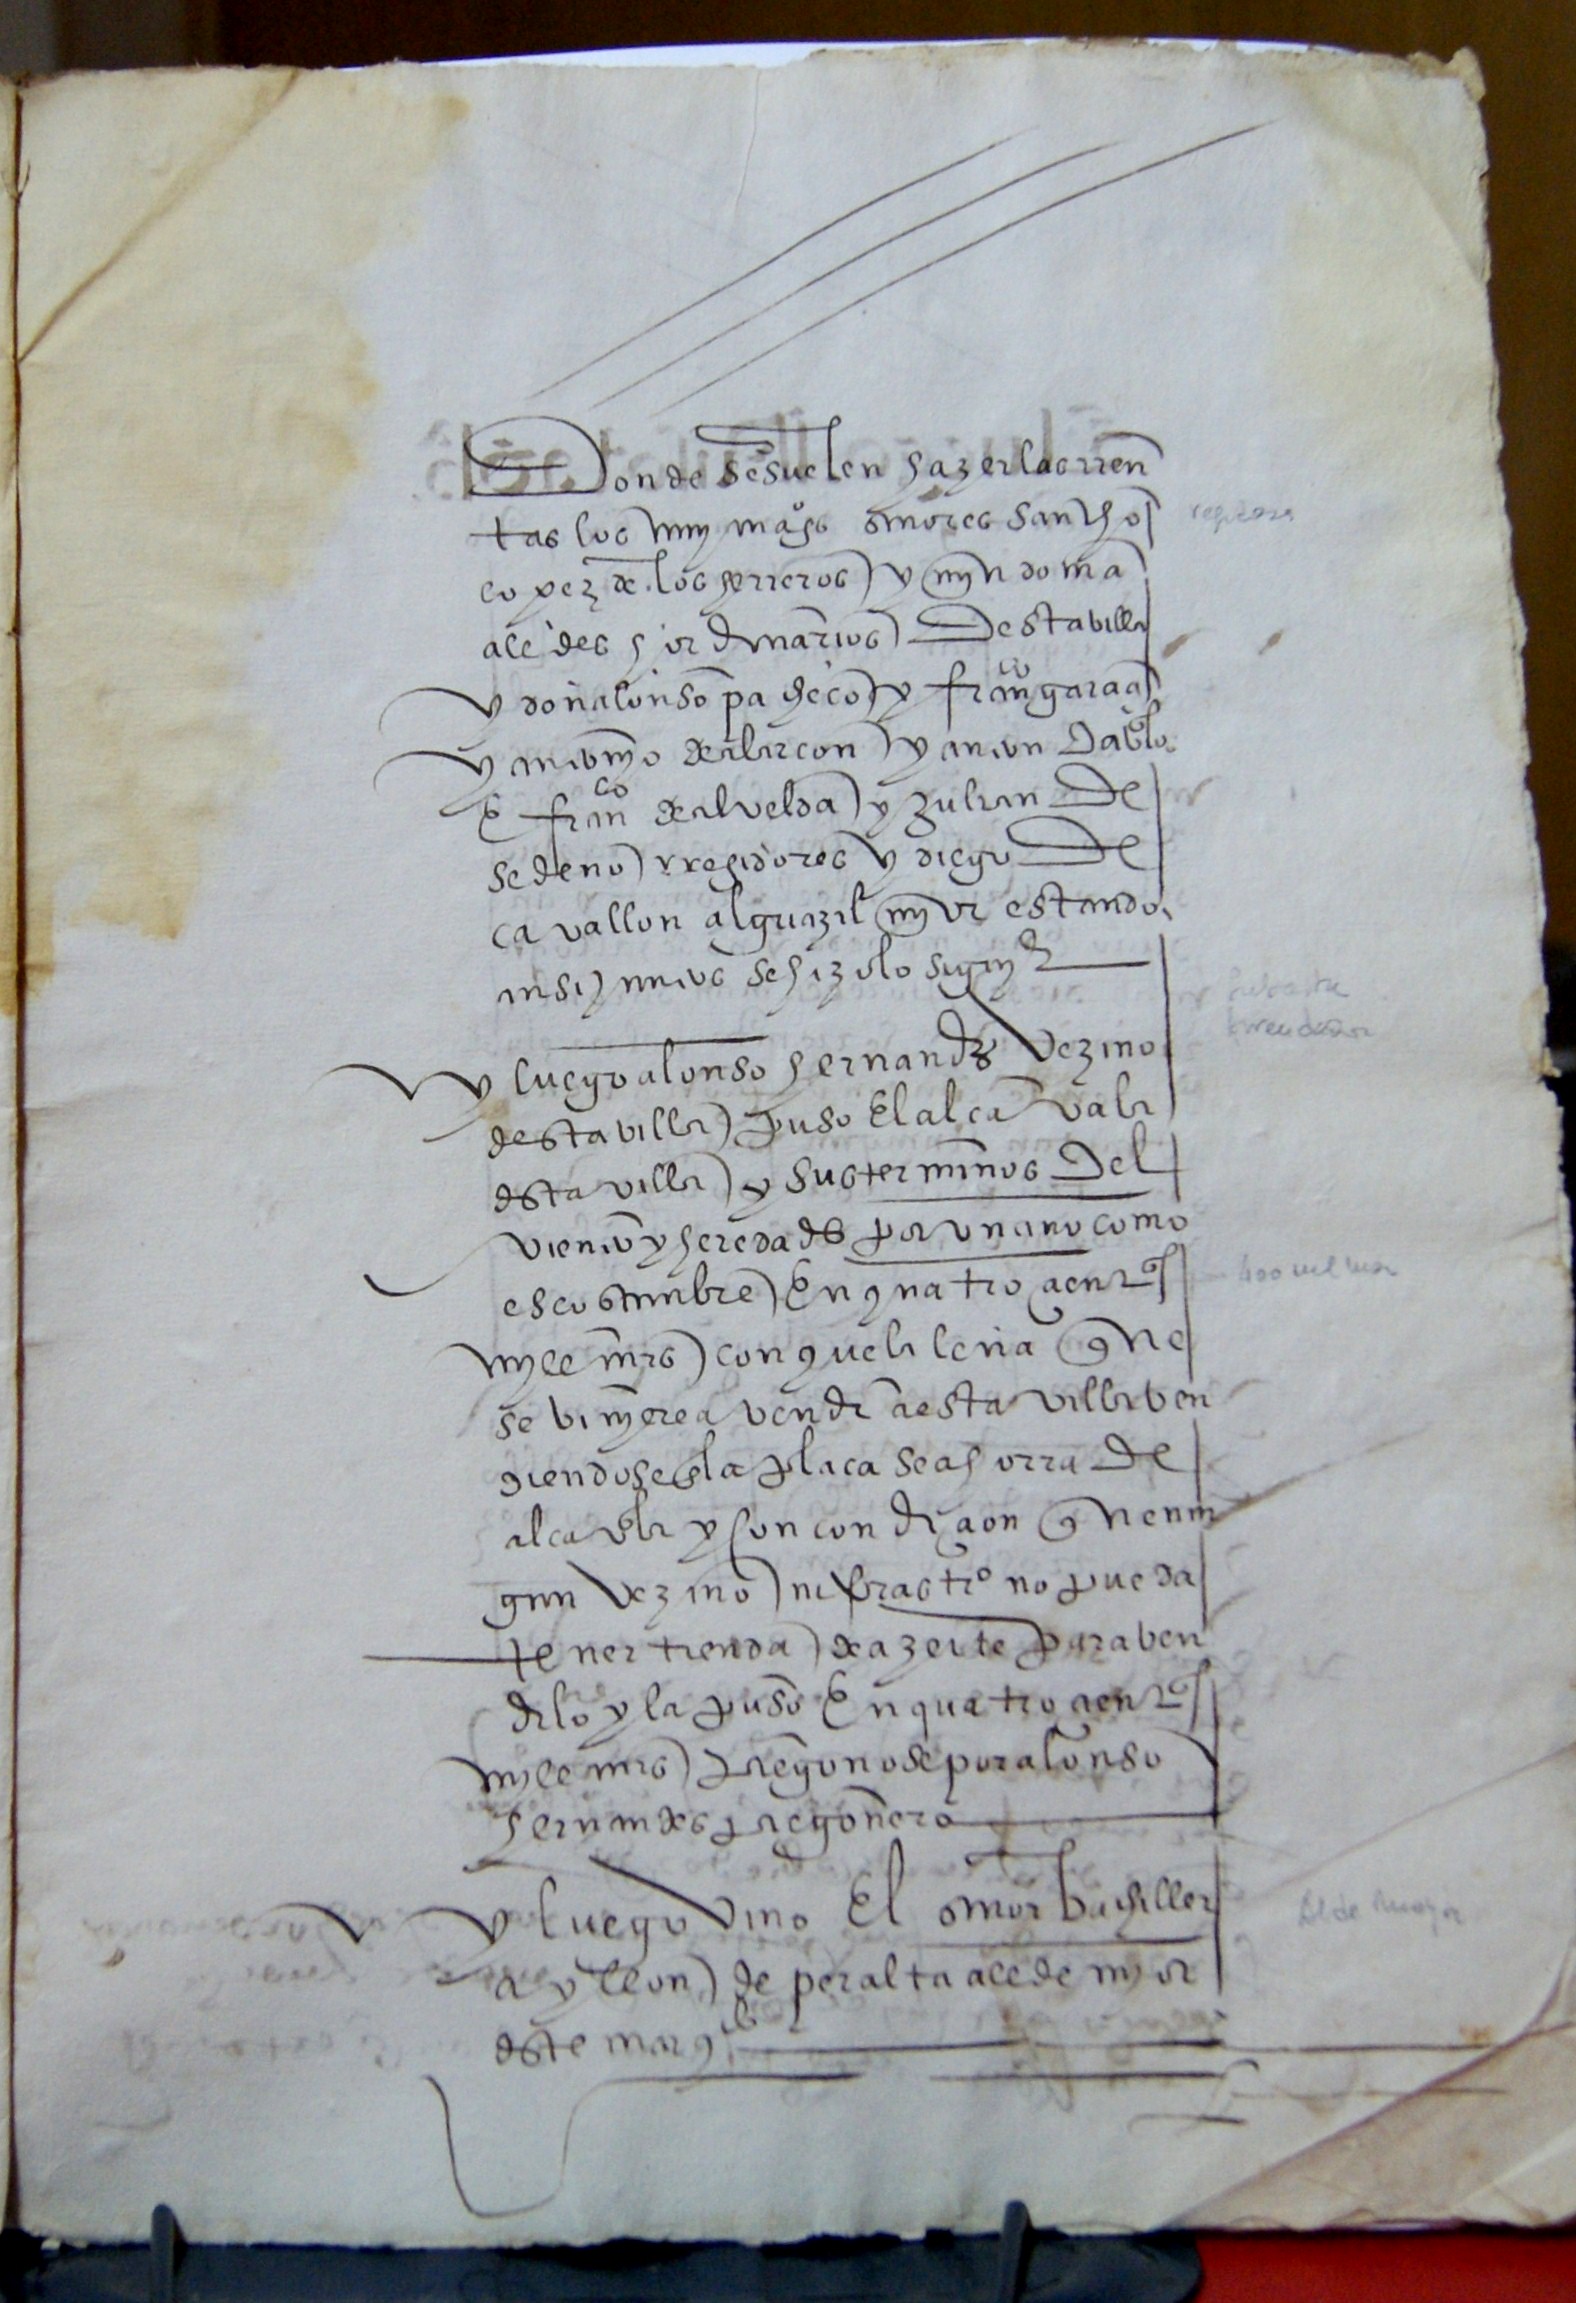 Donde se suelen hazer las rren
tas los muy mag̃os señores sancho
lopez de los herreros y myn doma
alc̃des hordinarios desta villa
y don alonso pacheco y fran͠co garcia
y de alarcon y anton dabl̃o
E fran͠co de alvelda y Julian de
sedeno rregidores y diego de
cavallon alguazil myor estando
ansi juntos se hizo lo sigy͠e
y luego alonso hernandz vezino
desta villa puso El alcavala
dsta villa y sus terminos del
viento y heredads por un ano como
es costunbre En quatro cientos
myll mrs con que la leña que
se viniere a vender a esta villa ven
diendose En la plaça sea horra de
alcavala y con condicion que nin
gun vezino ni forastro no pueda
tener tienda de azeite para ven
dello y la puso En quatro cientos
myll mrs pregonose por alonso
hernandes pregonero
y luego vino El señor bachiller
ayllon de peralta alcde myor
dste marq̃
regidores
subasta
400 mil mrs
Alde mayor